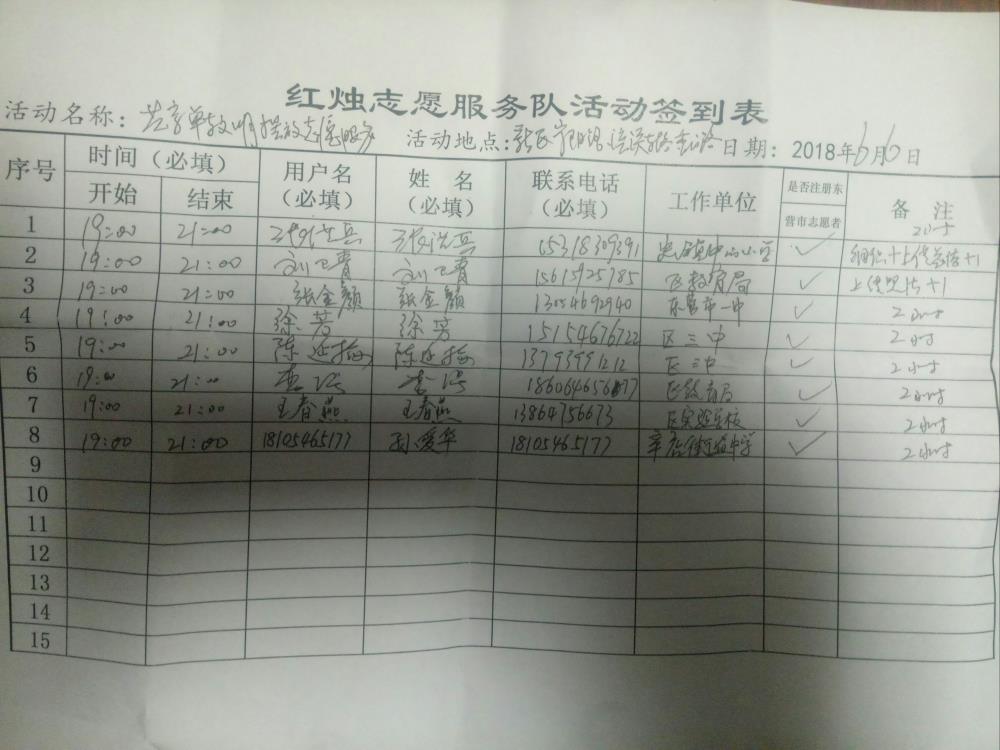 红烛志愿服务队活动签到表
活动名称：共享单车文明摆放志愿服务 活动地点： 日期：2018年6月6日
序号 时间（必填） 用户名（必填） 姓名（必填） 联系电话（必填） 工作单位 是否注册东营市志愿者 备注
开始 结束
1 19:00 21:00 ✓ 2小时
2 19:00 21:00 刘卫青 刘卫青 15615925785 区教育局 ✓
3 19:00 21:00 张金颜 张金颜 13054692940 东营市一中 ✓ 2小时
4 19:00 21:00 徐芳 徐芳 15154676722 区三中 ✓ 2小时
5 19:00 21:00 陈延梅 陈延梅 13793991212 区三中 ✓ 2小时
6 19:00 21:00 区教育局 ✓ 2小时
7 19:00 21:00 王春燕 王春燕 13864756673 区实验学校 ✓ 2小时
8 19:00 21:00 18105465177 孙爱华 18105465177 辛店街道中学 ✓ 2小时
9
10
11
12
13
14
15